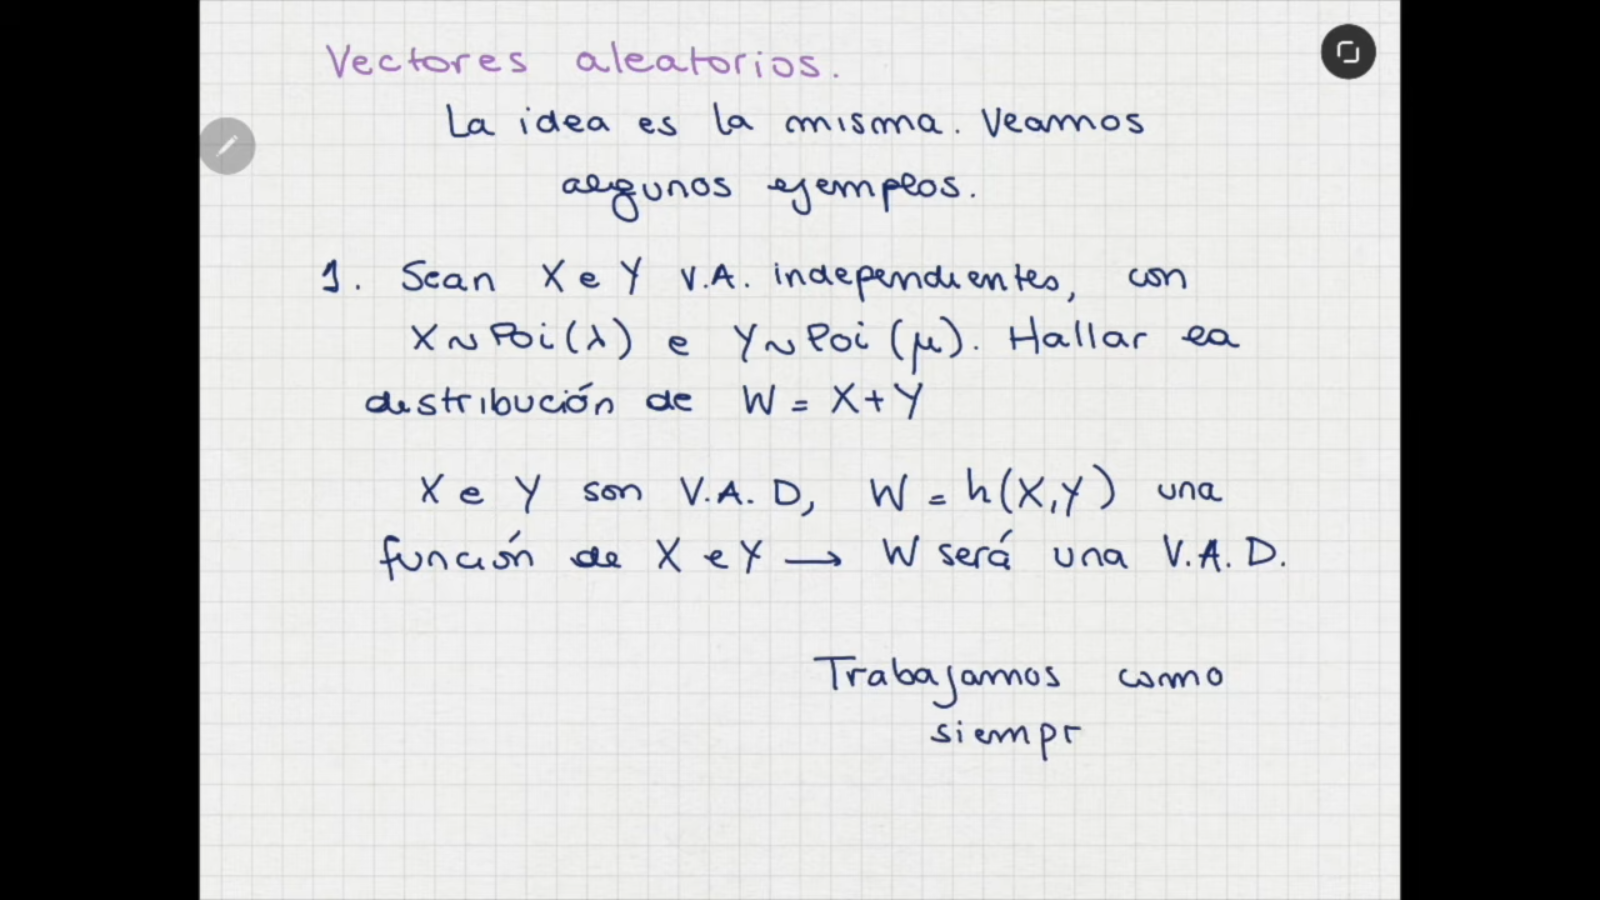 Vectores aleatorios.
La idea es la misma. Veamos
algunos ejemplos.
1. Sean X e Y V.A. independientes, con
X ~ Poi(λ) e Y ~ Poi(μ). Hallar la
distribución de W = X+Y
X e Y son V.A.D, W = h(X,Y) una
función de X e Y → W será una V.A.D.
Trabajamos como
siempr